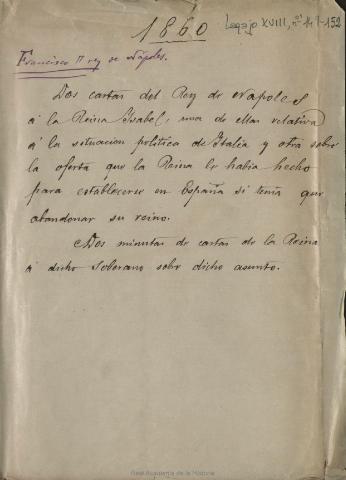 1860
Legajo XVIII, nº 149-152
Francisco II rey de Nápoles.
Dos cartas del Rey de Napoles
á la Reina Isabel, una de ellas relativa
á la situacion politica de Italia y otra sobre
la oferta que la Reina le habia hecho
para establecerse en España si tenia que
abandonar su reino.
Dos minutas de cartas de la Reina
á dicho Soberano sobre dicho asunto.
Real Academia de la Historia